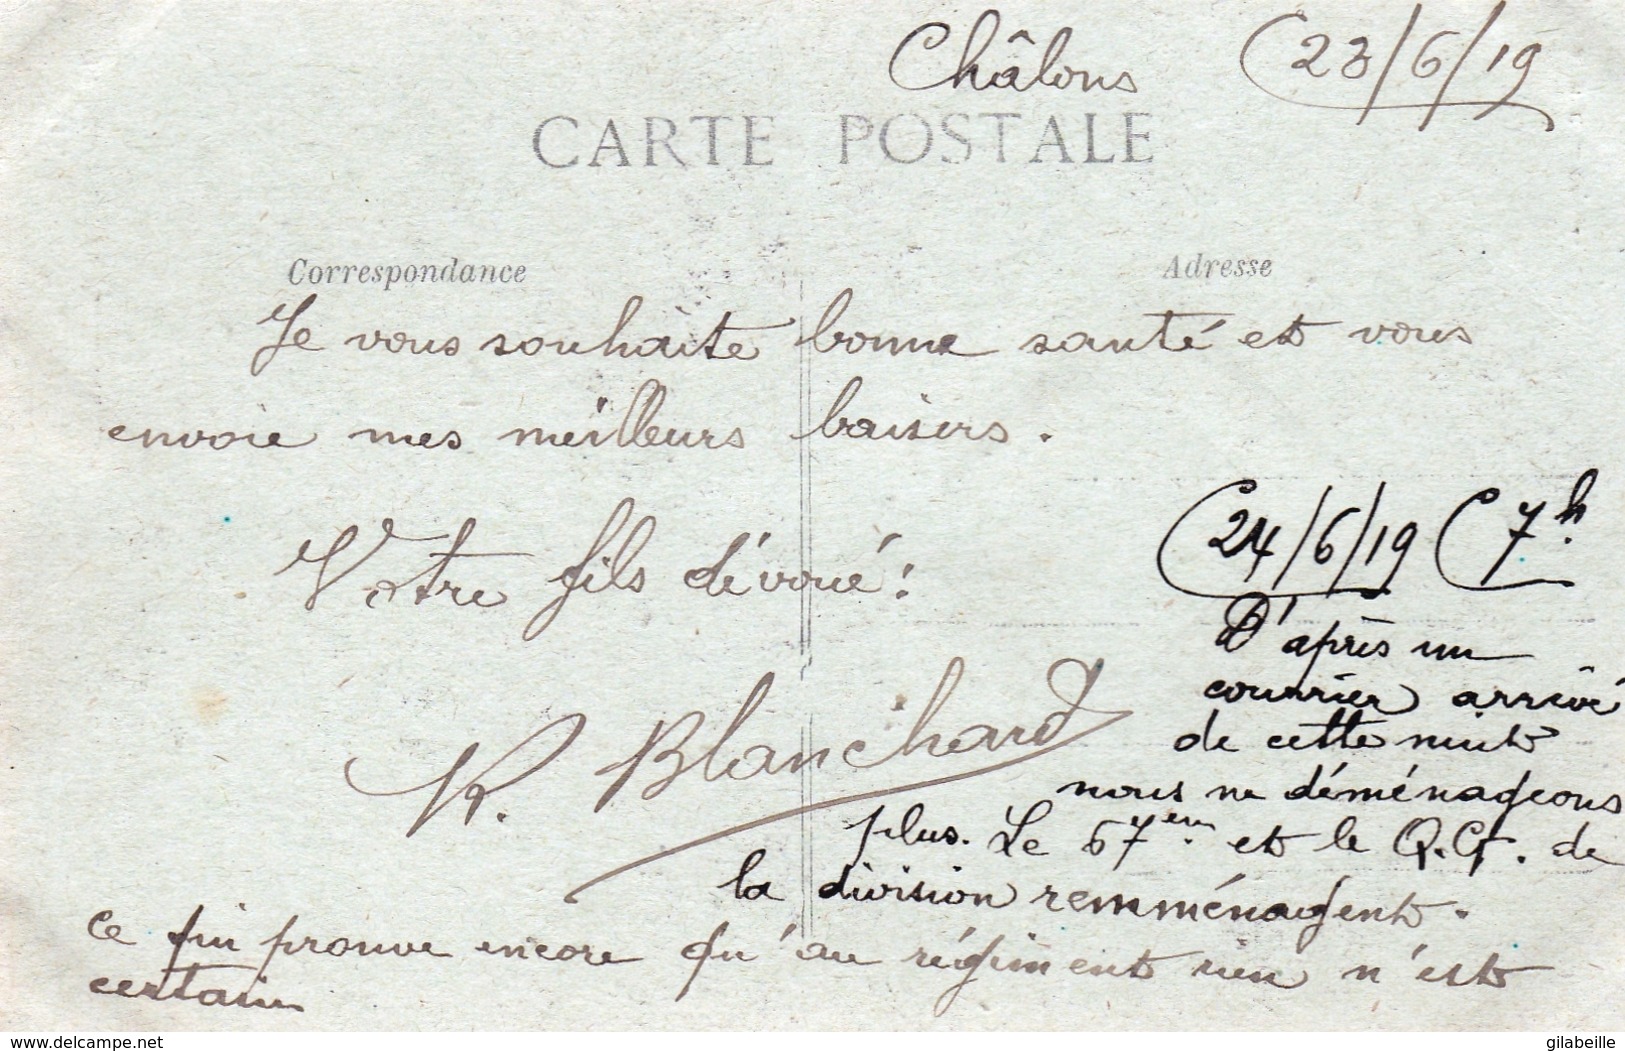 Châlons 23/6/19
CARTE POSTALE
Correspondance Adresse
Je vous souhaite bonne santé et vous
envoie mes meilleurs baisers.
Votre fils dévoué :
R. Blanchard
24/6/19 7h.
D'après un
courrier arrivé
de cette nuit
nous ne déménageons
plus. Le 67em. et le Q.G. de
la division remménagent.
Ce qui prouve encore qu'au régiment rien n'est
certain
www.delcampe.net gilabeille